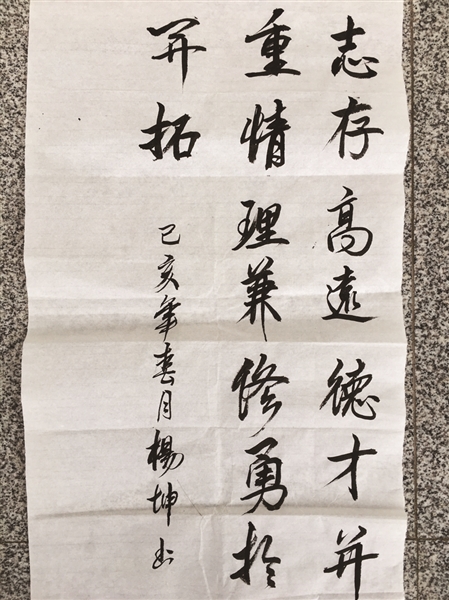 志存高遠德才并
重情理兼修勇於
開拓
己亥年春月楊坤书